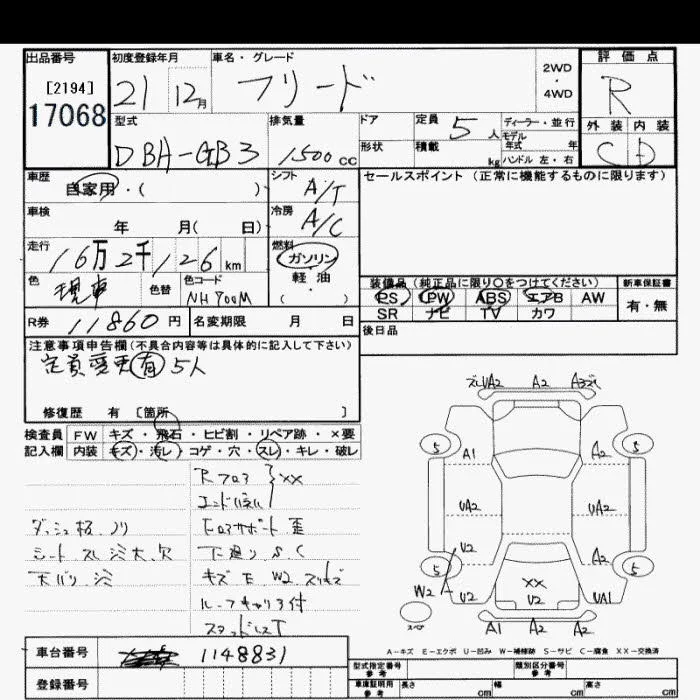 出品番号
[2194]
17068
初度登録年月
21 12月
車名・グレード
フリード
2WD
・
4WD
評価点
R
外装 内装
C D
型式
DBA-GB3
排気量
1500 cc
ドア
形状
定員 5 人
積載 kg
ディーラー・並行
モデル
年式 年
ハンドル 左・右
車歴
自家用・( )
シフト
A/T
セールスポイント (正常に機能するものに限ります)
車検
年 月( 日)
冷房
A/C
走行
16万2千126 km
燃料
ガソリン
軽・油
( )
色
現車
色替
色コード
NH700M
装備品 (純正品に限り〇をつけてください)
PS PW ABS エアB AW
SR ナビ TV カワ
新車保証書
有・無
R券 11860 円
名変期限 月 日
後日品
注意事項申告欄(不具合内容等は具体的に記入して下さい)
定員変更有 5人
修復歴 有 [箇所 ]
検査員
記入欄
FW キズ・飛石・ヒビ割・リペア跡・×要
内装 キズ・汚レ・コゲ・穴・スレ・キレ・破レ
Rフロア XX
ダッシュ板、ノリ
シート スレ
下廻り S C
キズ E W2
ルーフキャリア付
A2 A2
5 5
A1 A2
UA2 UA2
U2 A2
5 5
XX
W2 U2 U2 UA1
スペア
A1 A2 A2
A-キズ E-エクボ U-凹み W-補修跡 S-サビ C-腐食 XX-交換済
車台番号 1148831
登録番号
型式指定番号
参考
類別区分番号
参考
車庫証明用
参考
長さ cm 幅 cm 高さ cm